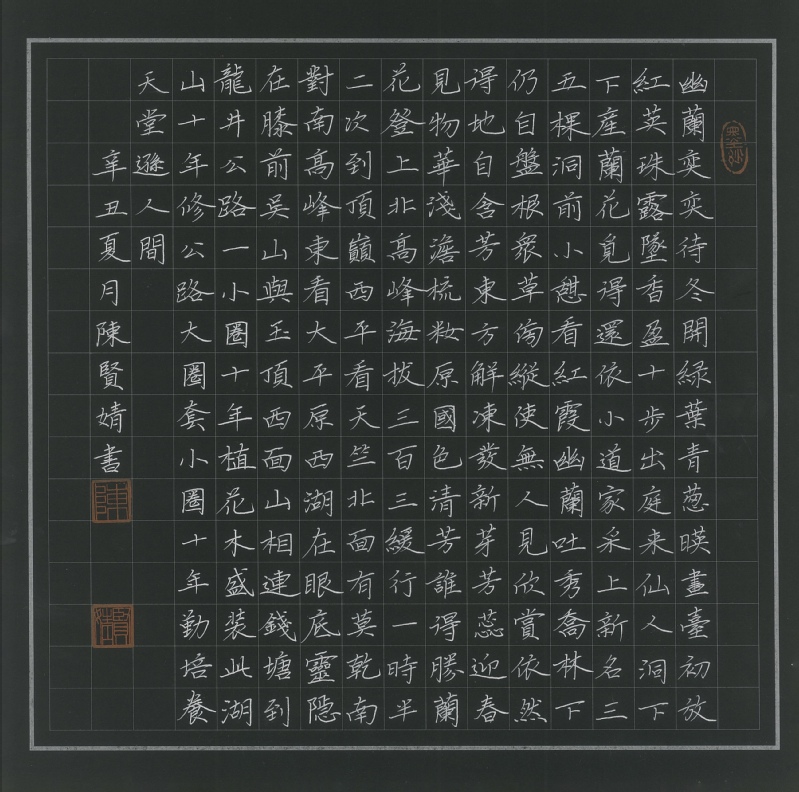 幽蘭奕奕待冬開綠葉青葱暎畫臺初放
紅英珠露墜香盈十步出庭来仙人洞下
下産蘭花覓得還依小道家采上新名三
五棵洞前小憇看紅霞幽蘭吐秀喬林下
仍自盤根眾草傍縱使無人見欣賞依然
得地自含芳東方解凍發新芽芳蕊迎春
見物華淺澹梳粧原國色清芳誰得勝蘭
花登上北高峰海拔三百三緩行一時半
二次到頂巔西平看天竺北面有莫乾南
對南高峰東看大平原西湖在眼底靈隱
在膝前吳山與玉頂西面山相連錢塘到
龍井公路一小圈十年植花木盛装此湖
山十年修公路大圈套小圈十年勤培養
天堂遜人間
辛丑夏月陳賢婧書